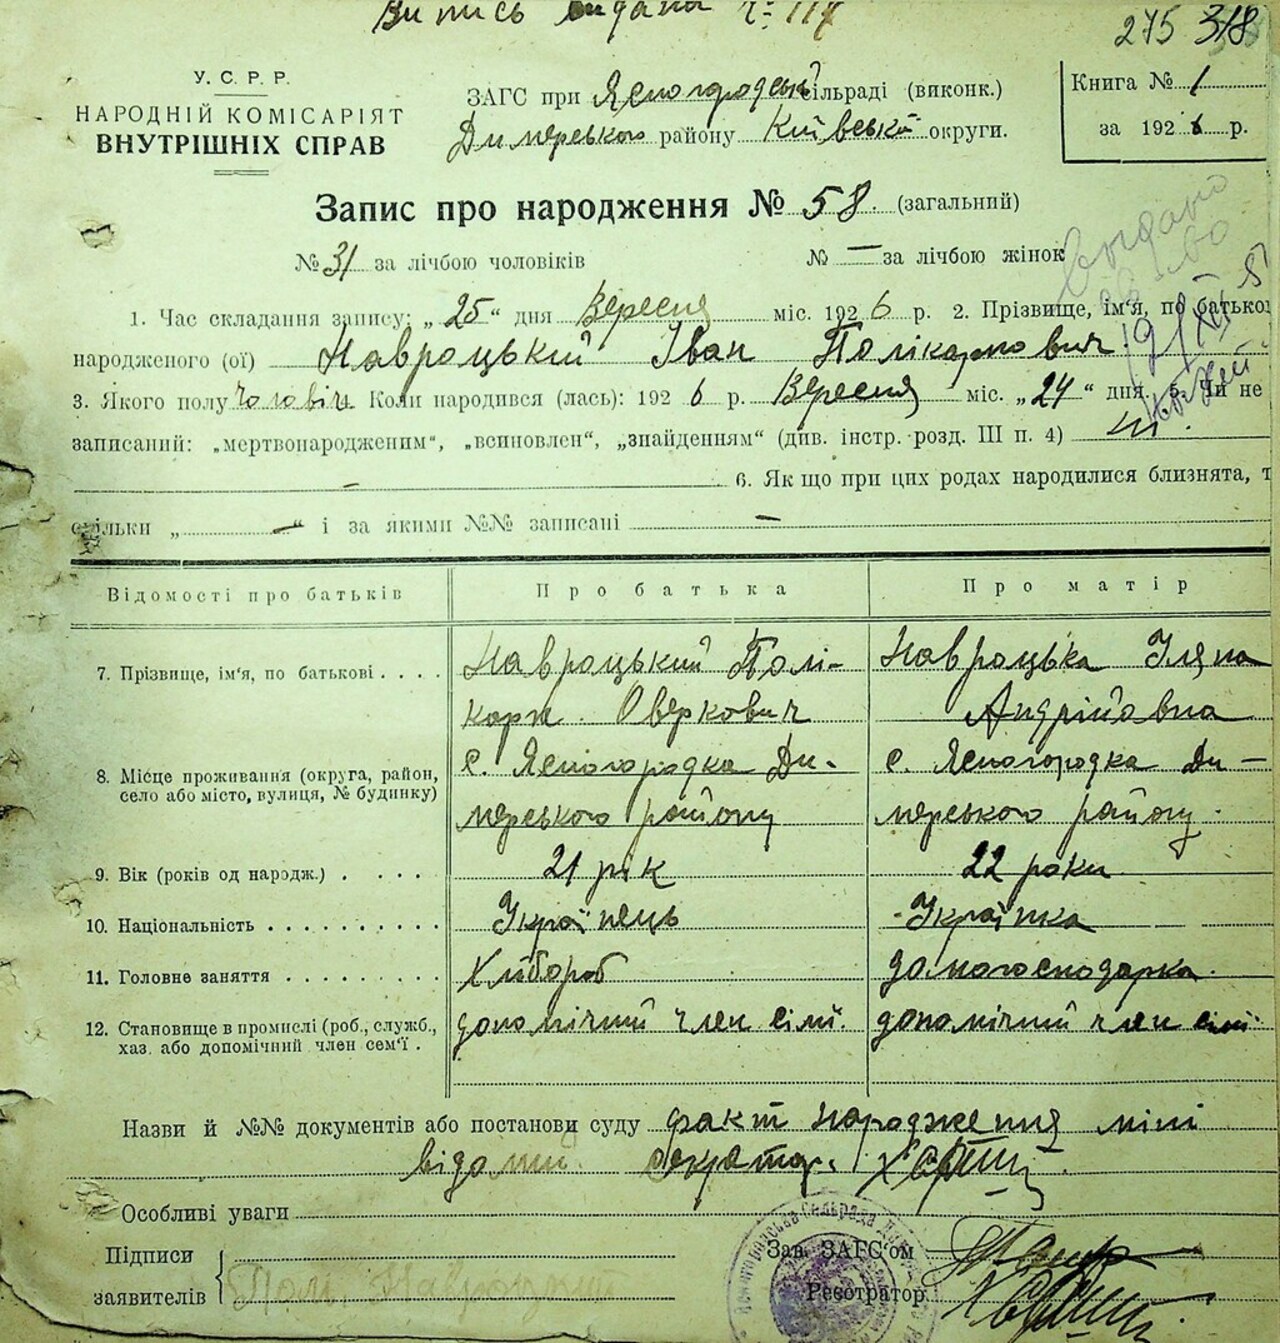 Випись видана № 117
275 318
У. С. Р. Р.
НАРОДНІЙ КОМІСАРІЯТ
ВНУТРІШНІХ СПРАВ
ЗАГС при Ясногородській сільраді (виконк.)
Димерського району Київської округи.
Книга № 1
за 1926 р.
Запис про народження № 58. (загальний)
№ 31 за лічбою чоловіків № — за лічбою жінок
Выдано
1. Час складання запису: „25“ дня Вересня міс. 1926 р. 2. Прізвище, ім'я, по батькові
народженого (ої) Навроцький Іван Полікарпович
3. Якого полу чоловіч. Коли народився (лась): 1926 р. Вересня міс. „24“ дня. 5. Чи не
записаний: „мертвонародженим“, „всиновлен“, „знайденням“ (див. інстр. розд. III п. 4) ні.
— 6. Як що при цих родах народилися близнята, т
скільки „—“ і за якими №№ записані —
Відомості про батьків Про батька Про матір
7. Прізвище, ім'я, по батькові . . . . Навроцький Полі- Навроцька Уляна
карп. Оверкович Андріївна
8. Місце проживання (округа, район, село або місто, вулиця, № будинку) с. Ясногородка Ди- с. Ясногородка Ди-
мерського району мерського району.
9. Вік (років од народж.) . . . . 21 рік 22 роки
10. Національність . . . . . . . . . . Українець Українка
11. Головне заняття . . . . . . . . . Хлібороб домогосподарка.
12. Становище в промислі (роб., служб., хаз. або допомічний член сем'ї . допомічний член сімї. допомічний член сімї
Назви й №№ документів або постанови суду факт народження мині
відомий. секретар.
Особливі уваги
Підписи
заявителів Пол. Навроцкий
Зав. ЗАГС'ом
Реєстратор